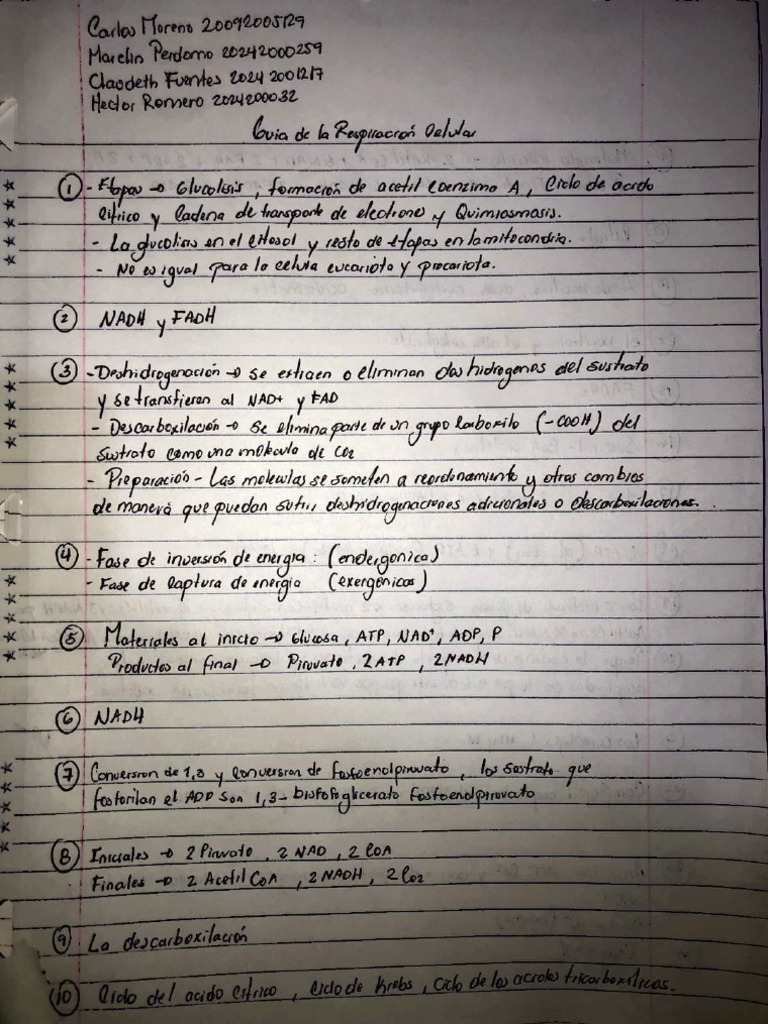 Carlos Moreno 20092005129
Marelin Perdomo 20242000259
Claudeth Fuentes 2024 2001217
Hector Romero 2024200032
Guia de la Respiración Celular
① - Etapas → Glucolisis, formación de acetil coenzima A, Ciclo de acido
citrico y Cadena de transporte de electrones y Quimiosmosis.
- La glucolisis en el citosol y resto de etapas en la mitocondria.
- No es igual para la celula eucariota y procariota.
② NADH y FADH
③ - Deshidrogenación → se extraen o eliminan dos hidrogenos del sustrato
y se transfieren al NAD+ y FAD
- Descarboxilación → Se elimina parte de un grupo Carboxilo (-COOH) del
sustrato como una molécula de CO2
- Preparación - Las moleculas se someten a reordenamiento y otros cambios
de manera que puedan sufrir deshidrogenaciones adicionales o descarboxilaciones.
④ - Fase de inversión de energia: (endergonica)
- Fase de Captura de energia (exergonicas)
⑤ Materiales al inicio → Glucosa, ATP, NAD+, ADP, P
Productos al final → Piruvato, 2 ATP, 2 NADH
⑥ NADH
⑦ Conversion de 1,3 y Conversion de fosfoenolpiruvato, los sustrato que
fosforilan el ADP son 1,3- bisfofoglicerato fosfoenolpiruvato
⑧ Iniciales → 2 Piruvato, 2 NAD, 2 CoA
Finales → 2 Acetil CoA, 2 NADH, 2 CO2
⑨ La descarboxilación
⑩ Ciclo del acido citrico, Ciclo de Krebs, Ciclo de los acidos tricarboxilicos.